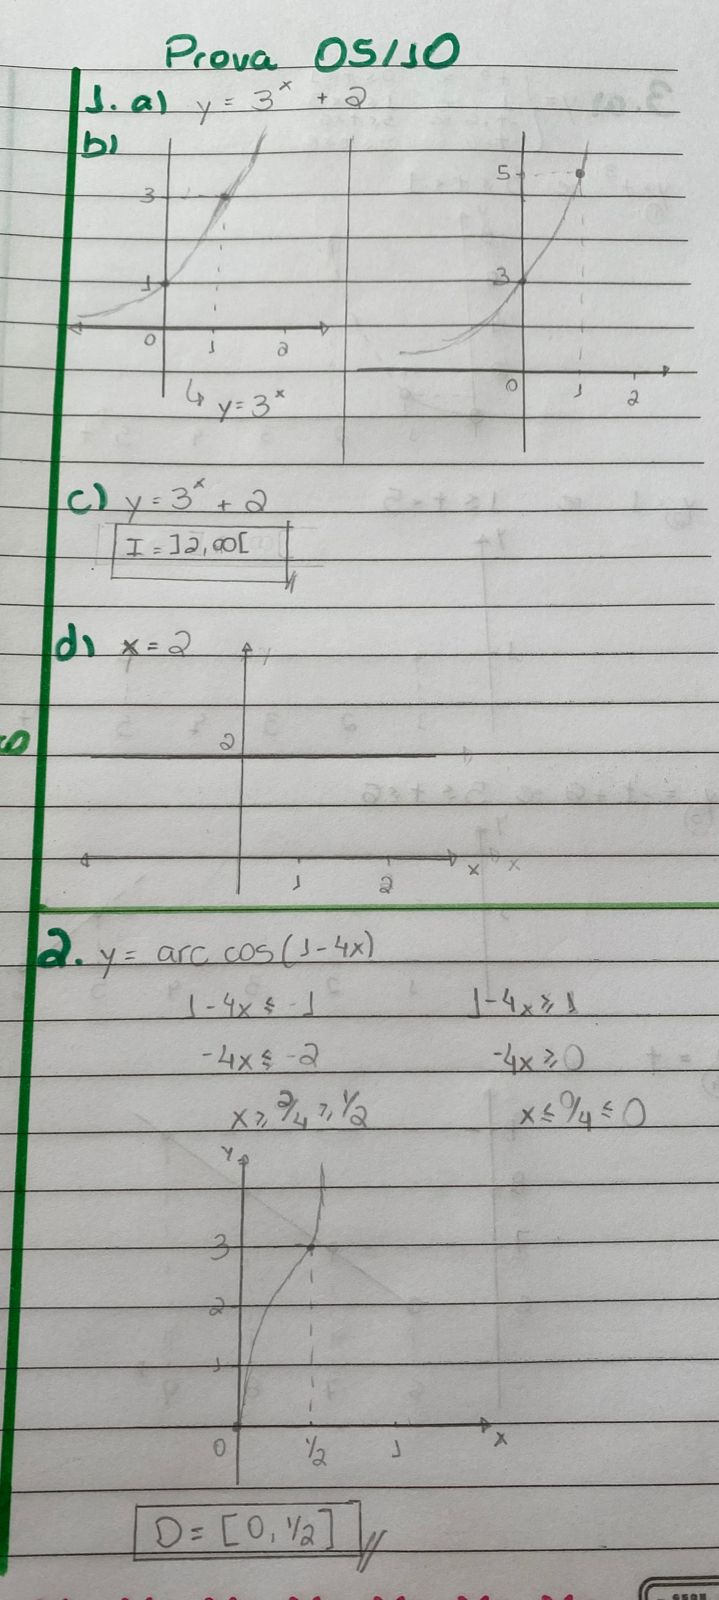 Prova 05/10
1. a) y = 3ˣ + 2
b)
3
1
0 1 2
↳ y = 3ˣ
5
3
0 1 2
c) y = 3ˣ + 2
I = ]2,∞[
d) x = 2
y
2
1 2 x
2. y = arc cos(1-4x)
1-4x ≤ -1 1-4x ≥ 1
-4x ≤ -2 -4x ≥ 0
x ≥ 2/4 ≥ 1/2 x ≤ 0/4 ≤ 0
y
3
2
1
0 1/2 1 x
D = [0, 1/2]